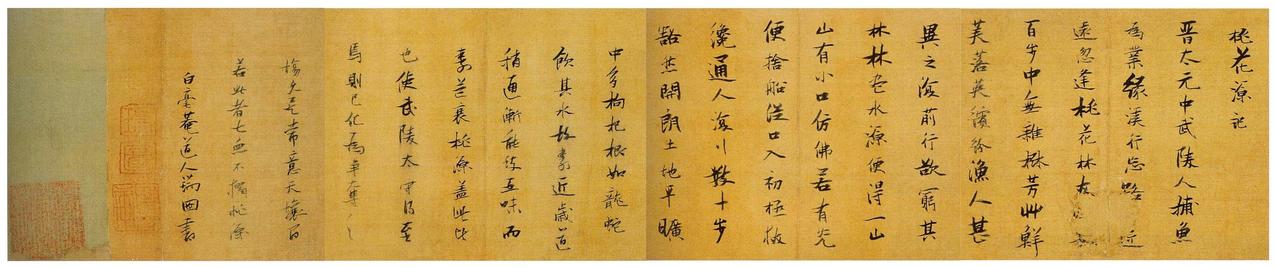 桃花源記
晉太元中武陵人捕魚
為業緣溪行忘路
遠忽逢桃花林夾
百步中無雜樹芳艸鮮
美落英繽紛漁人甚
異之復前行欲窮其
林林盡水源便得一山
山有小口仿佛若有光
便捨船從口入初極狹
纔通人復行數十步
豁然開朗土地平曠
中多枸杞根如龍蛇
飲其水故壽近歲道
稍通漸能致五味而
壽益衰桃源蓋此比
也使武陵太守得至
焉則已化為爭奪之
場久矣常意天壤間
若此者甚眾不獨桃源
白毫菴道人瑞圖書